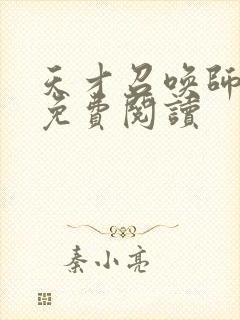 天才召唤師
免費閱讀
秦小亮